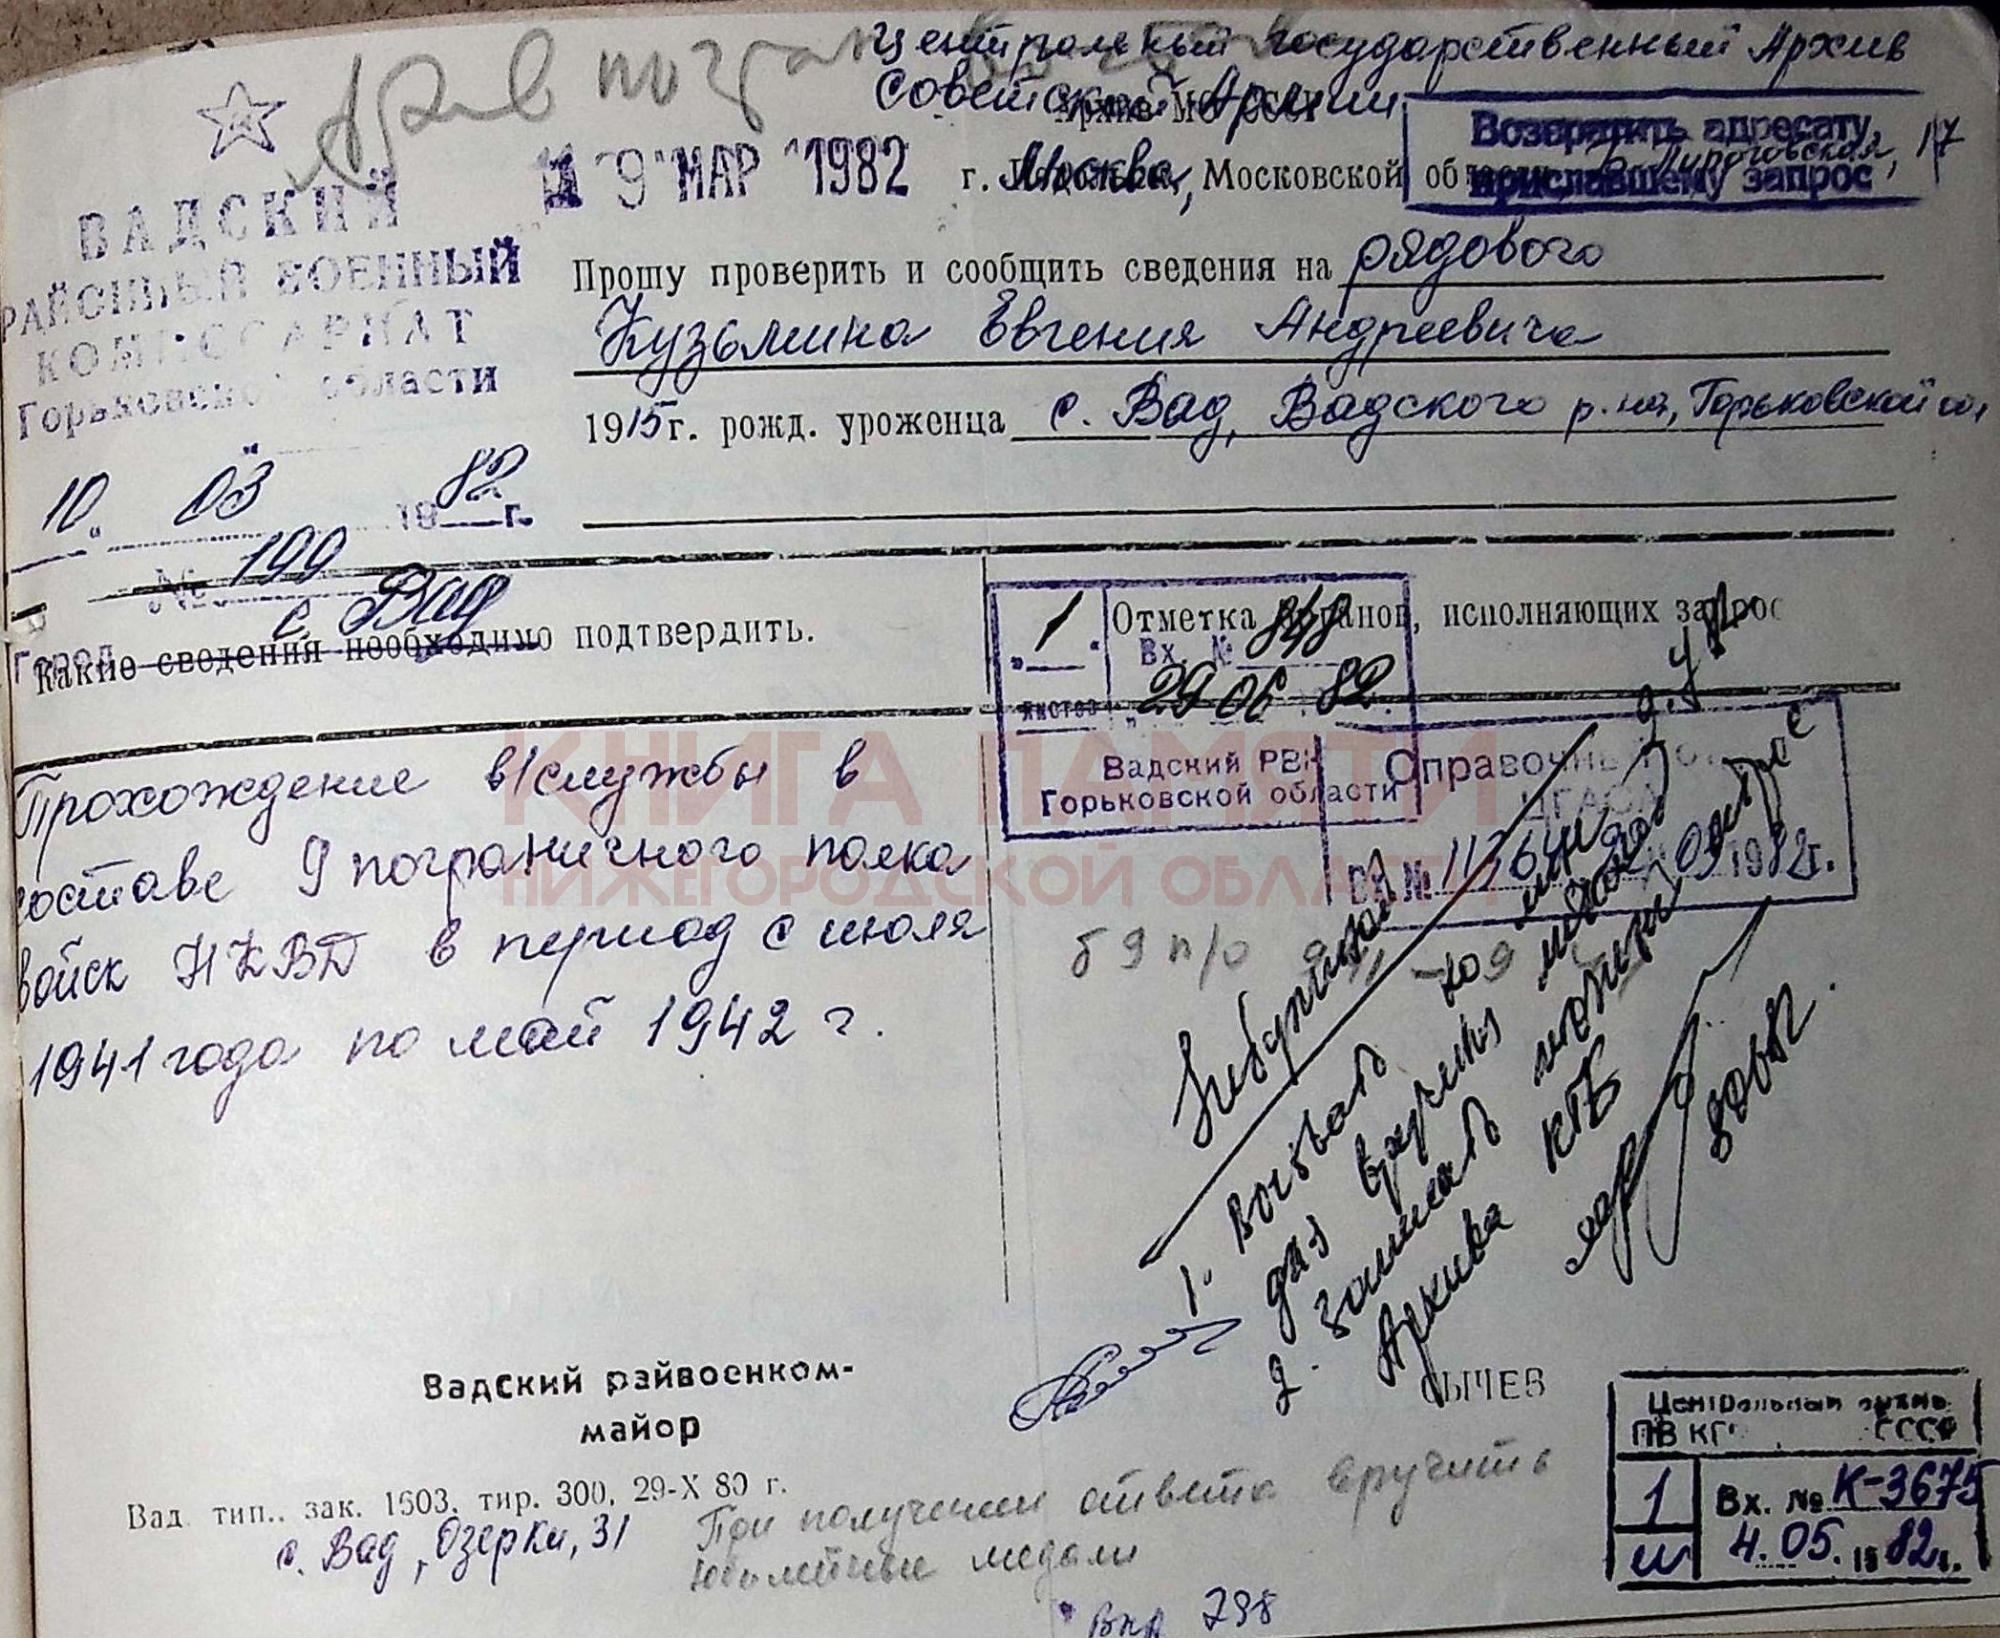 Центральный Государственный Архив
Советской Армии
19 МАР 1982
г. Москва, Московской области
Пироговская, 17
Возвратить адресату,
приславшему запрос
ВАДСКИЙ
РАЙОННЫЙ ВОЕННЫЙ
КОМИССАРИАТ
Горьковской области
10. 03 1982 г.
№ 199
с Вад
Город
Прошу проверить и сообщить сведения на рядового
Кузьмина Евгения Андреевича
1915 г. рожд. уроженца с. Вад, Вадского р-на, Горьковской
Какие сведения необходимо подтвердить.
Отметка органов, исполняющих запрос
1
листов
Вх. № 848
29 06 82.
Вадский РВК
Горьковской области
Справочный
ЦГАСА
1982 г.
КНИГА ПАМЯТИ
НИЖЕГОРОДСКОЙ ОБЛАСТИ
Прохождение в/службы в
составе 9 пограничного полка
войск НКВД в период с июля
1941 года по май 1942 г.
б 9 п/о
1. Вызвать
для вручения
2. Запросить
Архива КГБ
Вадский райвоенком-
майор
СЫЧЕВ
Вад. тип., зак. 1603, тир. 300, 29-X 80 г.
с. Вад, Озерки, 31
При получении ответа вручить
юбилейные медали
Центральный архив
ПВ КГБ СССР
1
Вх. № К-3675
4. 05. 1982 г.
798